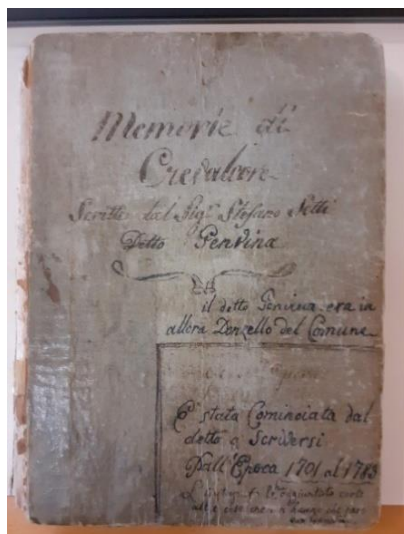 Memorie di
Crevalcore
Scritte dal Sig.r Stefano Setti
Detto Penvina
il detto Penvina era in
allora Donzello del Comune
E' stata Cominciata dal
detto a Scriversi
Dall'Epoca 1701 al 1783